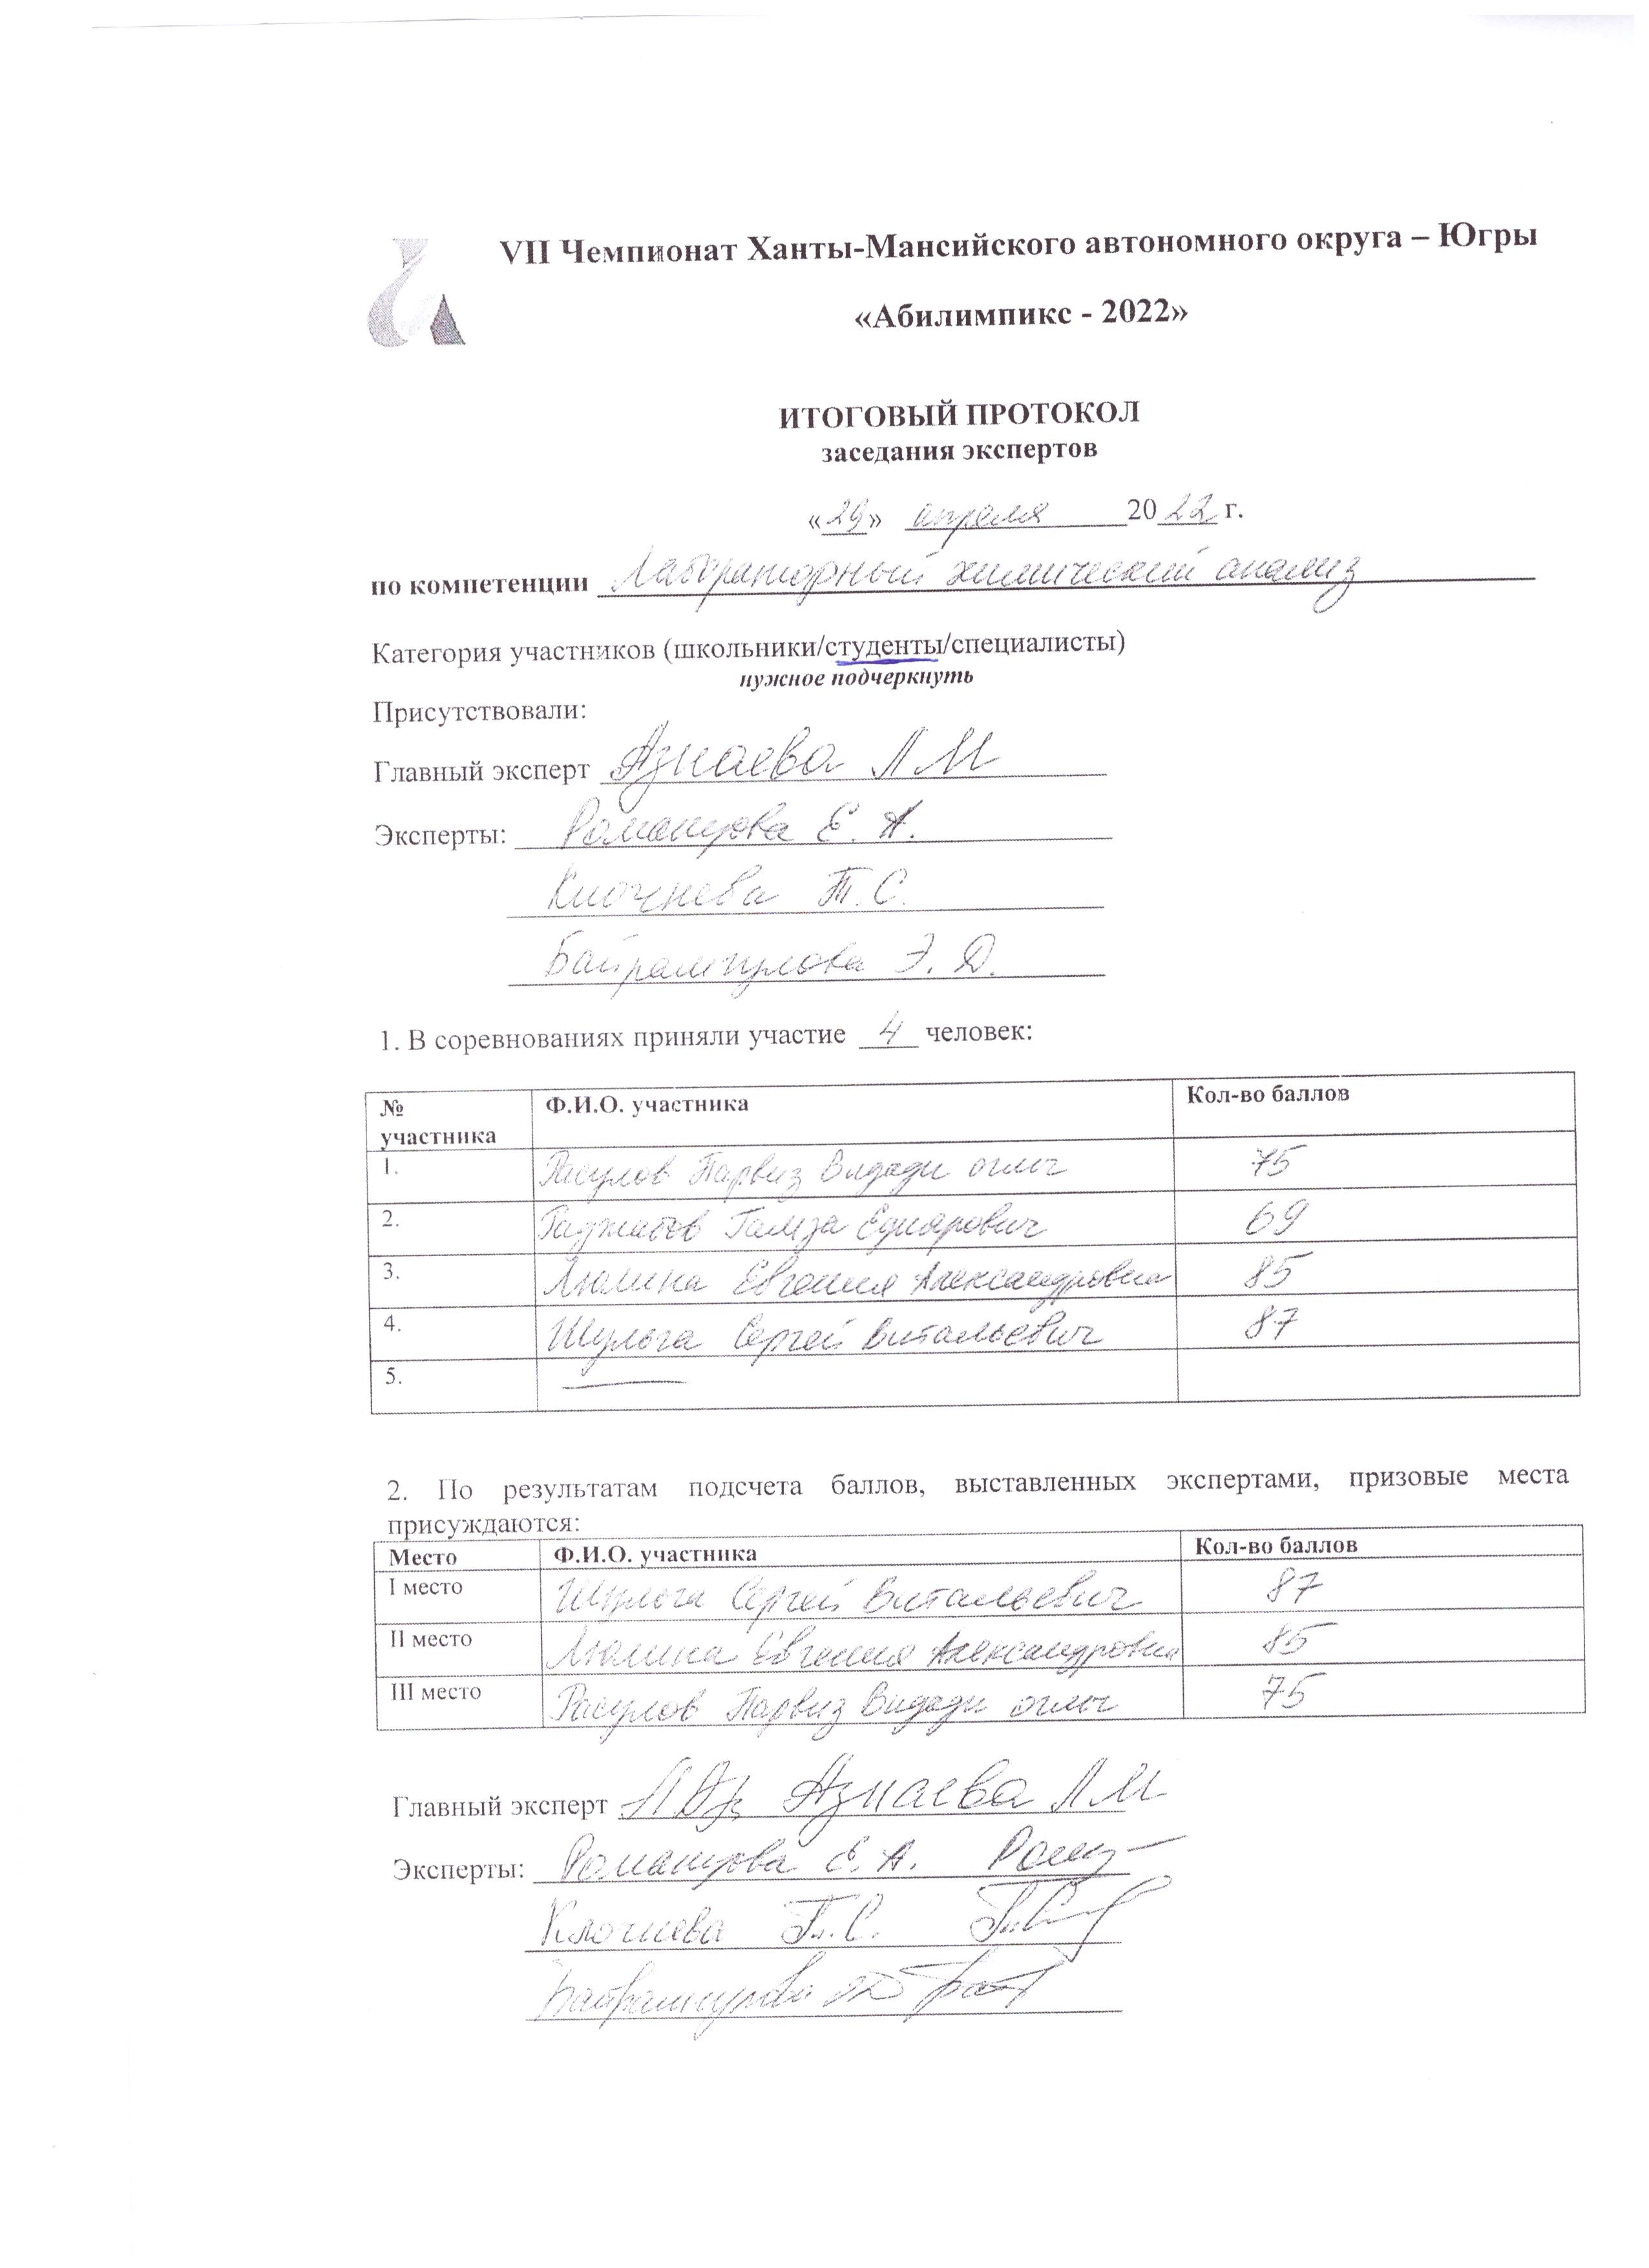 VII Чемпионат Ханты-Мансийского автономного округа – Югры
«Абилимпикс - 2022»
ИТОГОВЫЙ ПРОТОКОЛ
заседания экспертов
«29» апреля 2022 г.
по компетенции Лабораторный химический анализ
Категория участников (школьники/студенты/специалисты)
нужное подчеркнуть
Присутствовали:
Главный эксперт Азнаева Л М
Эксперты: Романцова Е. А.
Клочнева Т. С.
Байрамгулова Э. Д.
1. В соревнованиях приняли участие 4 человек:
№ Ф.И.О. участника Кол-во баллов
участника
1. Расулов Парвиз Видади оглы 75
2. Раджабов Гамза 69
3. Люлина Евгения Александровна 85
4. Шульга Сергей Витальевич 87
5.
2. По результатам подсчета баллов, выставленных экспертами, призовые места
присуждаются:
Место Ф.И.О. участника Кол-во баллов
I место Шульга Сергей Витальевич 87
II место Люлина Евгения Александровна 85
III место Расулов Парвиз Видади оглы 75
Главный эксперт Азнаева Л М
Эксперты: Романцова Е. А.
Клочнева Т. С.
Байрамгулова ЭД